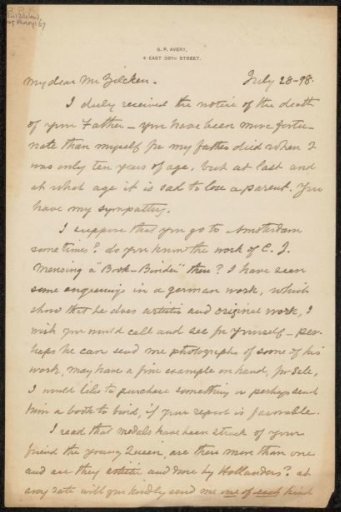 S. P. AVERY,
4 EAST 38TH STREET.
My dear Mr Zilcken. July 28-98.
I duly received the notice of the death
of your Father – you have been more fortu-
nate than myself for my father died when I
was only ten years of age, but at last and
at what age it is sad to lose a parent. You
have my sympathy.
I suppose that you go to Amsterdam
sometime? do you know the work of C. J.
Mensing a "Book-Binder" there? I have seen
some engravings in a german work, which
show that he does artistic and original work, I
wish you would call and see for yourself – per-
haps he can send me photographs of some of his
work, may have a fine example on hand, for sale,
I would like to purchase something or perhaps send
him a book to bind, if your report is favorable.
I read that medals have been struck of your
friend the young Queen, are there more than one
and are they artistic and done by Hollanders? at
any rate will you kindly send me one of each kind